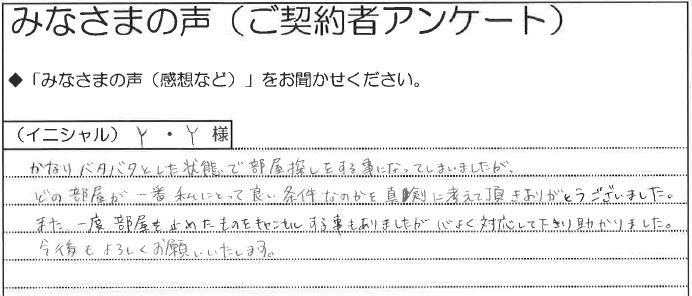 みなさまの声（ご契約者アンケート）
◆「みなさまの声（感想など）」をお聞かせください。
（イニシャル） Y ・ Y 様
かなりバタバタとした状態で部屋探しをする事になってしまいましたが、
どの部屋が一番私にとって良い条件なのかを真剣に考えて頂きありがとうございました。
また一度部屋を止めたものをキャンセルする事もありましたが心よく対応して下さり助かりました。
今後もよろしくお願いいたします。